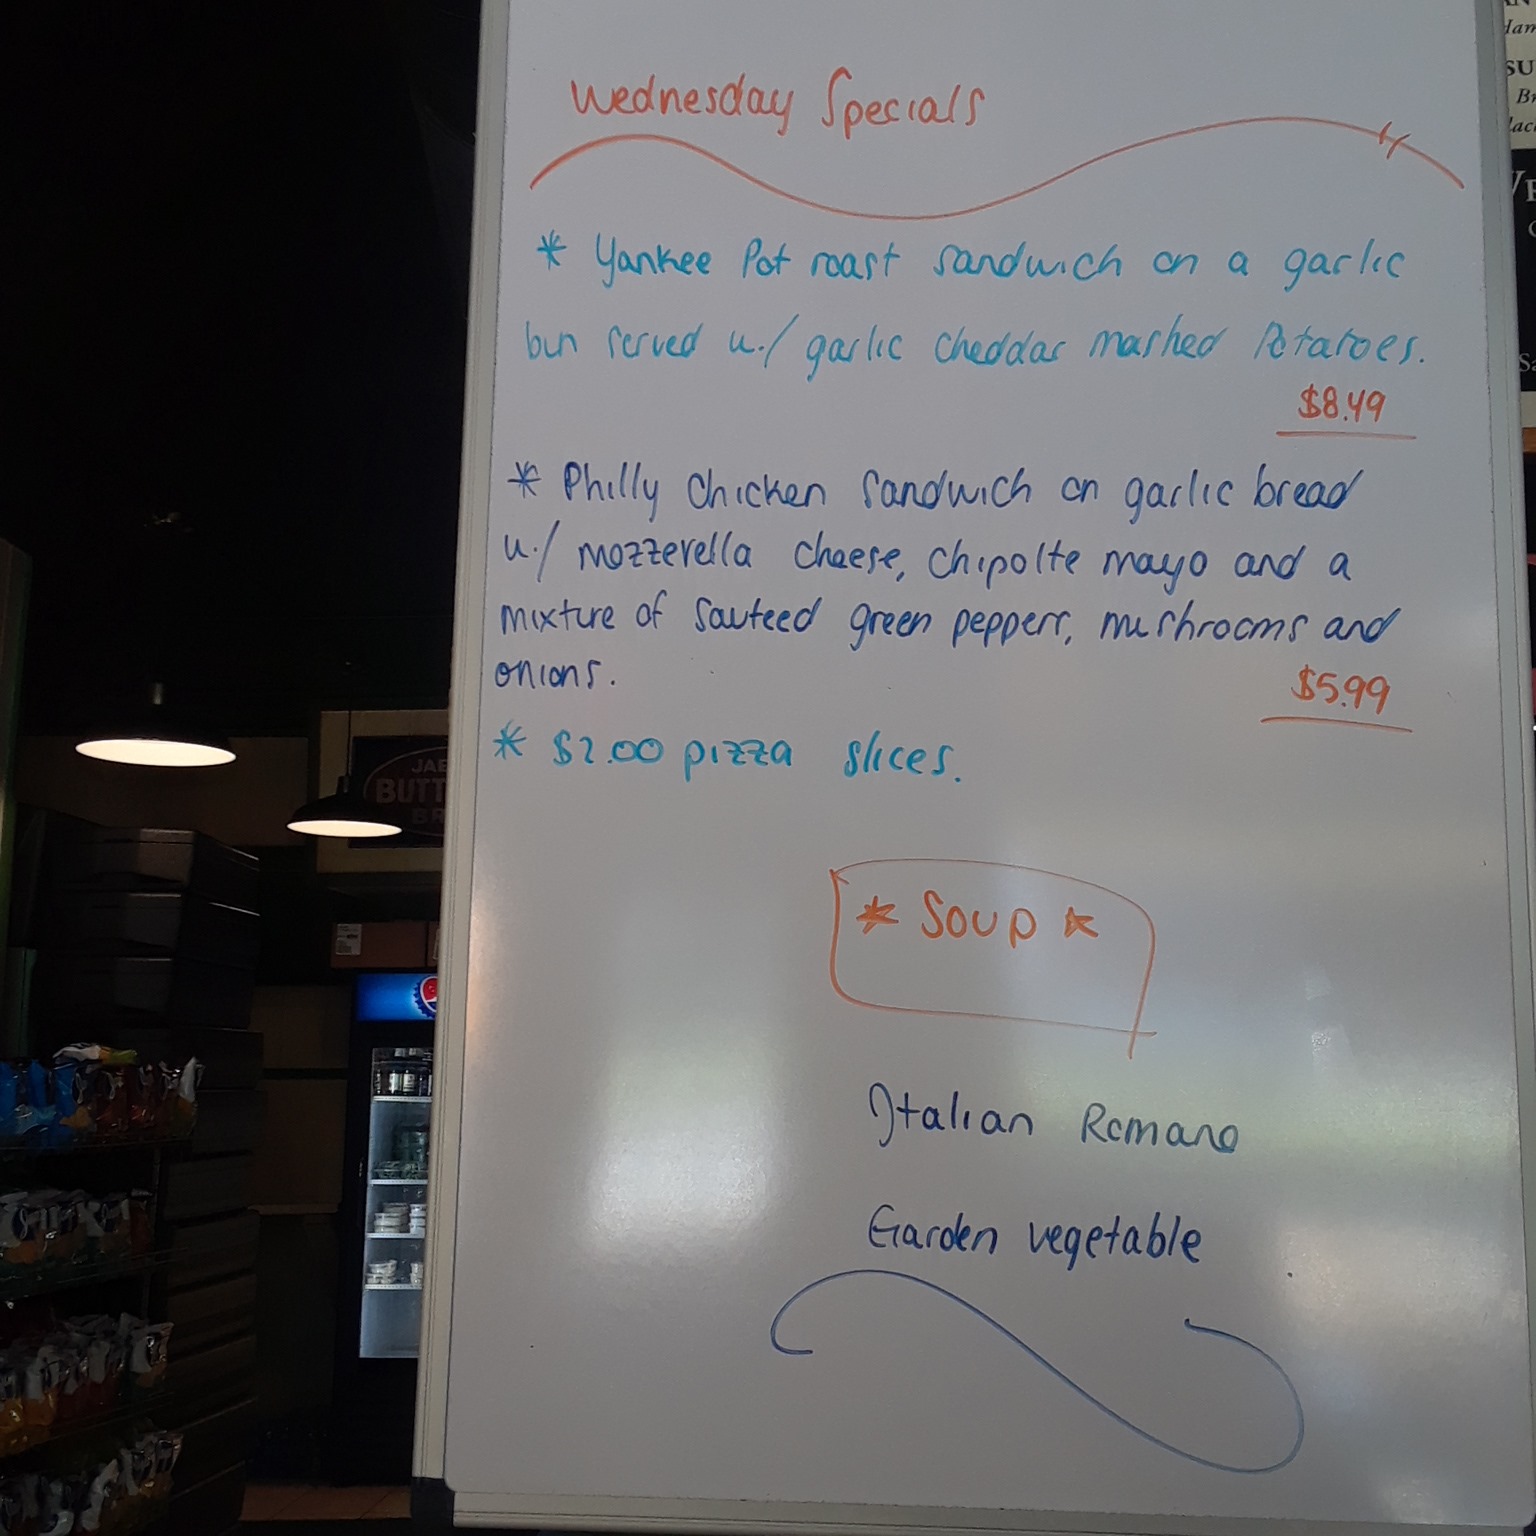 Wednesday Specials
* Yankee Pot roast sandwich on a garlic
bun served w./ garlic cheddar mashed Potatoes.
$8.49
* Philly Chicken Sandwich on garlic bread
w./ mozzerella cheese, chipolte mayo and a
mixture of sauteed green peppers, mushrooms and
onions.
$5.99
* $2.00 pizza slices.
* Soup *
Italian Romano
Garden vegetable
BUTT
BR
SU